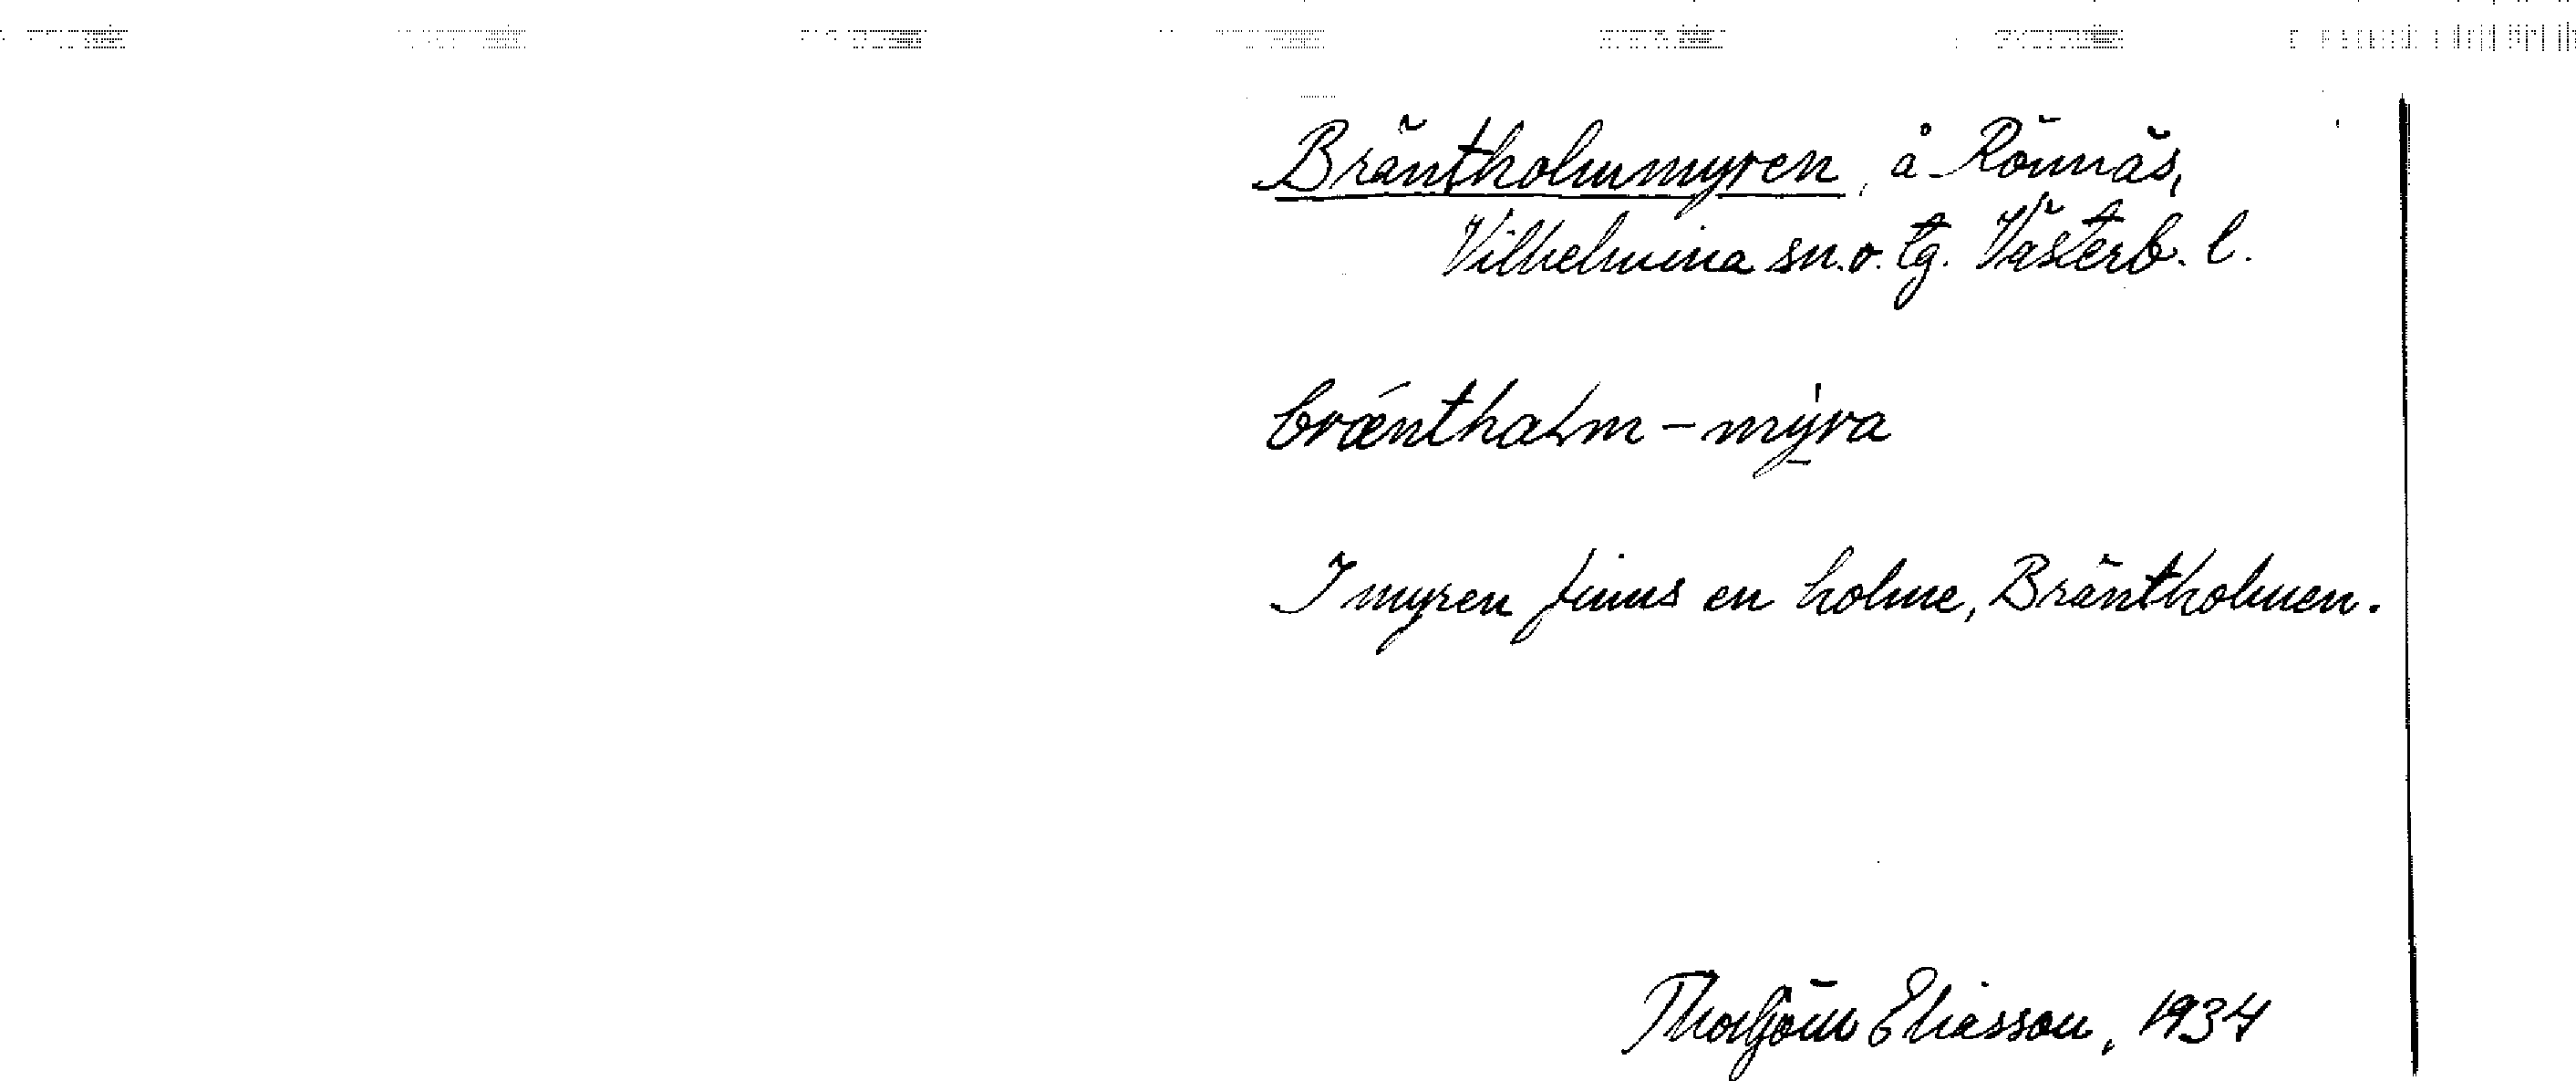 Bräntholmmyren, å Rönnäs,
Vilhelmina sn. o. tg. Västerb. l.
brǽnthaLm-mýra
I myren finns en holme, Bräntholmen.
Thorbjörn Eliasson, 1934